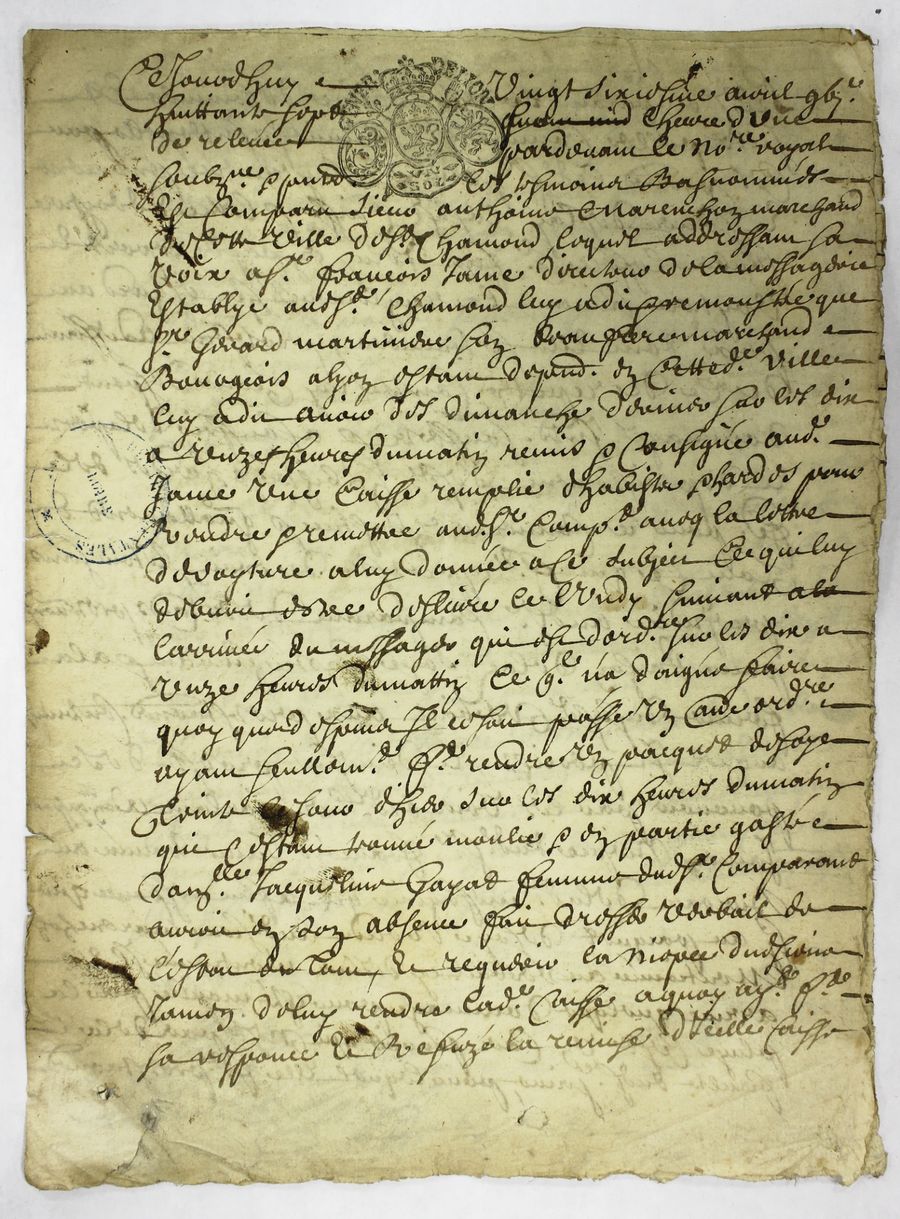 Cejourdhuy Vingt sixiesme avril gbj.c
huittante sept heure d'une
de relevee pardevant le No.re royal
soubz.ne p.sents les tesmoins Basnommés
Est Comparu sieur anthoine marchand
de cette Ville de S.t Chamond lequel addressant sa
voix a s.r françois Jame directeur de la messagerie
Establye aud. S.t Chamond luy a dit et remonstré que
s.r Gerard martinier son beaufrere marchand
Bourgeois a lyon estant en Cetted.e Ville
luy a dit avoir des dimanche dernier sur les dix
a unze heures du matin remis et Consigné aud.
Jame une Caisse remplie d'habistz et hardes pour
rendre et remettre aud. s.r Comp.t avecq la lettre
de voyture a luy donnée a ce subject Ce qui luy
debvoit estre deslivré le lundy suivant a la
l'arrivée du messager qui est d'ord.re sur les dix a
unze heures du mattin Ce q.l n'a daigné faire
quoy que despuis Il se soit passé un autre ord.re
ayant seullem.t f.t rendre un pacquet de soye
teinte le jour d'hier sur les dix heures du matin
que s'estant trouvé moulié et en partie gasté
dam.lle Jacqueline Gayat femme dud. s.r Comparant
auroit en son absence fait dresser verbail de
l'estat Et requerir la niepce dud. sieur
Jamen de luy rendre lad.e Caisse a quoy ay.t f.te
sa responce Et Refuzé la remise d'icelle Caisse